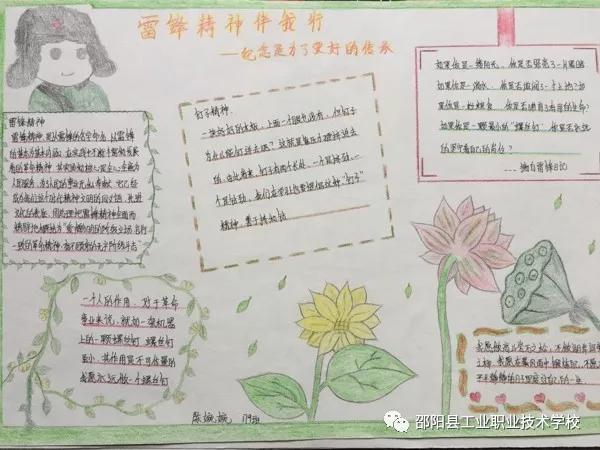 雷锋精神伴我行
——纪念是为了更好的传承
雷锋精神
雷锋精神,是以雷锋的名字命名,以雷锋
的精神为基本内涵,在实践中不断丰富和发展
着的革命精神,其实质和核心是全心全意为
人民服务,为了人民的事业无私奉献。
钉子精神:
一块好好的木板,上面一个眼也没有,但钉子
为什么能钉进去呢?这就是靠压力硬挤进去
的。由此看来,钉子有两个长处:一个是挤劲,一
个是钻劲。我们在学习也要提倡这种“钉子”
精神,善于挤和钻
如果你是一缕阳光,你是否照亮了一片黑暗
如果你是一滴水,你是否滋润了一寸土地?如
果你是一粒粮食,你是否哺育了有用的生命?
如果你是一颗最小的“螺丝钉”,你是否永远
的坚守着自己的岗位?
...摘自雷锋日记
一个人的作用,对于革命
事业来说,就如一架机器
上的一颗螺丝钉。螺丝钉
虽小,其作用是不可估量的
我愿永远做一个螺丝钉
我愿做高山岩石之松,不做湖岸河旁
之柳。我愿在暴风雨中锻炼自己,不愿
119班
邵阳县工业职业技术学校